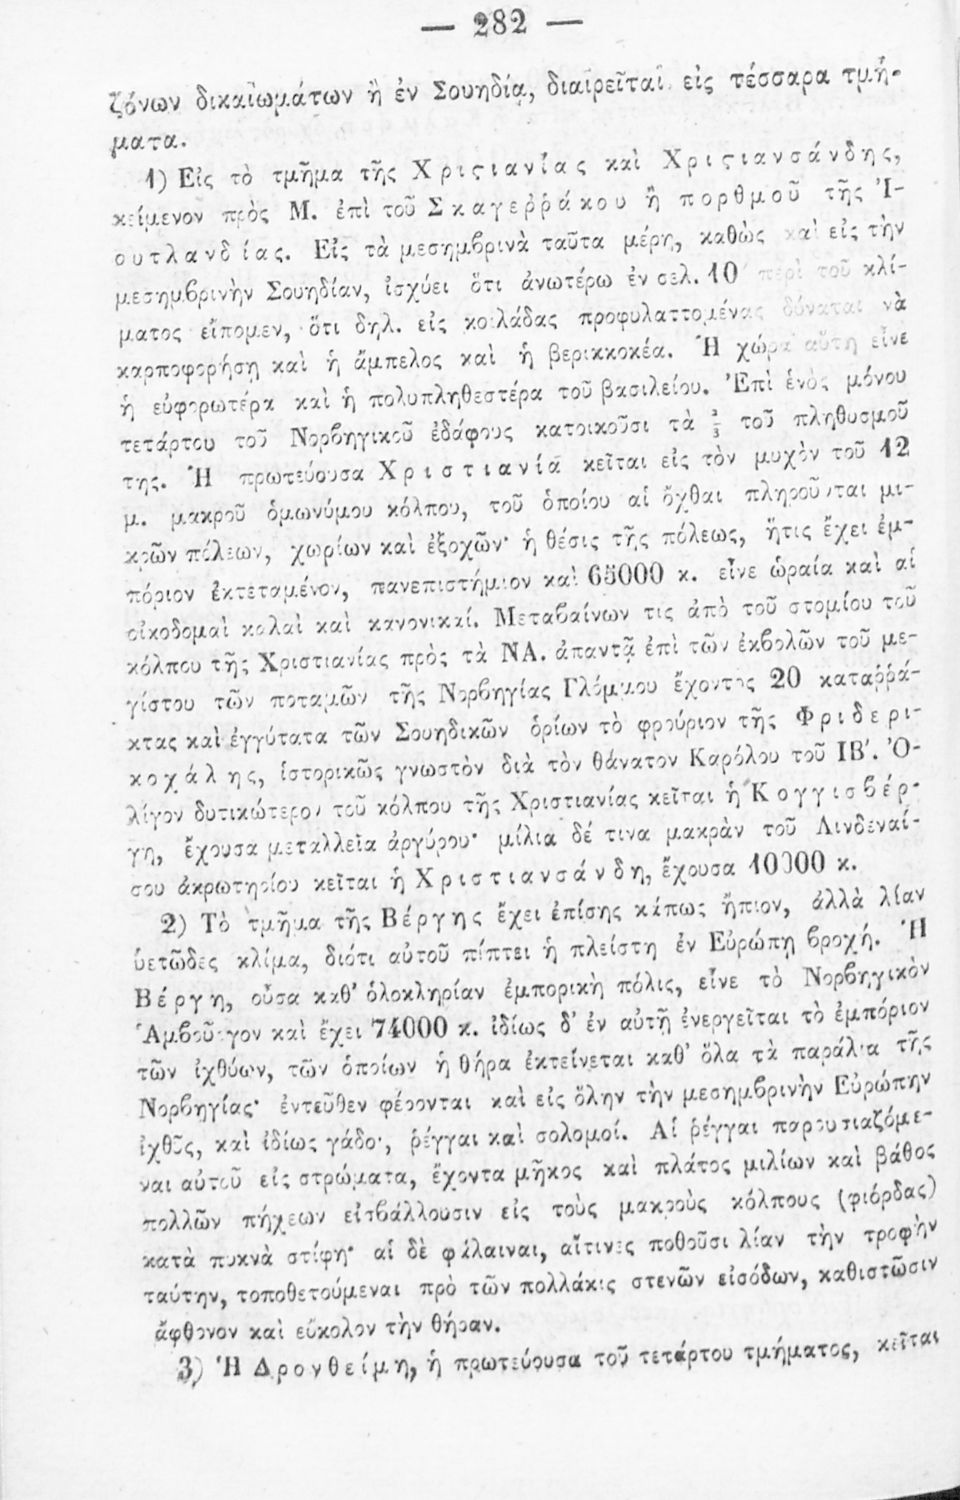 — 282 —
ζόνων δικαιωμάτων ἢ ἐν Σουηδίᾳ, διαιρεῖται εἰς τέσσαρα τμή-
ματα.
1) Εἰς τὸ τμῆμα τῆς Χριςιανίας καὶ Χριςιανσάνδης,
κείμενον πρὸς Μ. ἐπὶ τοῦ Σκαγεῤῥάκου ἢ πορθμοῦ τῆς Ἰ-
ουτλανδίας. Εἰς τὰ μεσημβρινὰ ταῦτα μέρη, καθὼς καὶ εἰς τὴν
μεσημβρινὴν Σουηδίαν, ἰσχύει ὅτι ἀνωτέρω ἐν σελ. 10 περὶ τοῦ κλί-
ματος εἴπομεν, ὅτι δηλ. εἰς κοιλάδας προφυλαττομένας δύναται νὰ
καρποφορήσῃ καὶ ἡ ἄμπελος καὶ ἡ βερικκοκέα. Ἡ χώρα αὕτη εἶνε
ἡ εὐφορωτέρα καὶ ἡ πολυπληθεστέρα τοῦ βασιλείου. Ἐπὶ ἑνὸς μόνου
τετάρτου τοῦ Νορβηγικοῦ ἐδάφους κατοικοῦσι τὰ ⅔ τοῦ πληθυσμοῦ
της. Ἡ πρωτεύουσα Χριστιανία κεῖται εἰς τὸν μυχὸν τοῦ 12
μ. μακροῦ ὁμωνύμου κόλπου, τοῦ ὁποίου αἱ ὄχθαι πληροῦνται μι-
κρῶν πόλεων, χωρίων καὶ ἐξοχῶν· ἡ θέσις τῆς πόλεως, ἥτις ἔχει ἐμ-
πόριον ἐκτεταμένον, πανεπιστήμιον καὶ 65000 κ. εἶνε ὡραία καὶ αἱ
οἰκοδομαὶ καλαὶ καὶ κανονικαί. Μεταβαίνων τις ἀπὸ τοῦ στομίου τοῦ
κόλπου τῆς Χριστιανίας πρὸς τὰ ΝΑ. ἀπαντᾷ ἐπὶ τῶν ἐκβολῶν τοῦ με-
γίστου τῶν ποταμῶν τῆς Νορβηγίας Γλόμμου ἔχοντος 20 καταῤῥά-
κτας καὶ ἐγγύτατα τῶν Σουηδικῶν ὁρίων τὸ φρούριον τῆς Φριδερι-
κοχάλης, ἱστορικῶς γνωστὸν διὰ τὸν θάνατον Καρόλου τοῦ ΙΒ'. Ὀ-
λίγον δυτικώτερον τοῦ κόλπου τῆς Χριστιανίας κεῖται ἡ Κογγισβέρ-
γη, ἔχουσα μεταλλεῖα ἀργύρου· μίλια δέ τινα μακρὰν τοῦ Λινδεναί-
σου ἀκρωτηρίου κεῖται ἡ Χριστιανσάνδη, ἔχουσα 10000 κ.
2) Τὸ τμῆμα τῆς Βέργης ἔχει ἐπίσης κάπως ἤπιον, ἀλλὰ λίαν
ὑετῶδες κλίμα, διότι αὐτοῦ πίπτει ἡ πλείστη ἐν Εὐρώπῃ βροχή. Ἡ
Βέργη, οὖσα καθ' ὁλοκληρίαν ἐμπορικὴ πόλις, εἶνε τὸ Νορβηγικὸν
Ἀμβοῦργον καὶ ἔχει 74000 κ. ἰδίως δ' ἐν αὐτῇ ἐνεργεῖται τὸ ἐμπόριον
τῶν ἰχθύων, τῶν ὁποίων ἡ θήρα ἐκτείνεται καθ' ὅλα τὰ παράλια τῆς
Νορβηγίας· ἐντεῦθεν φέρονται καὶ εἰς ὅλην τὴν μεσημβρινὴν Εὐρώπην
ἰχθῦς, καὶ ἰδίως γάδοι, ῥέγγαι καὶ σολομοί. Αἱ ῥέγγαι παρουσιαζόμε-
ναι αὐτοῦ εἰς στρώματα, ἔχοντα μῆκος καὶ πλάτος μιλίων καὶ βάθος
πολλῶν πήχεων εἰσβάλλουσιν εἰς τοὺς μακροὺς κόλπους (φιόρδας)
κατὰ πυκνὰ στίφη· αἱ δὲ φάλαιναι, αἵτινες ποθοῦσι λίαν τὴν τροφὴν
ταύτην, τοποθετούμεναι πρὸ τῶν πολλάκις στενῶν εἰσόδων, καθιστῶσιν
ἄφθονον καὶ εὔκολον τὴν θήραν.
3) Ἡ Δρονθείμη, ἡ πρωτεύουσα τοῦ τετάρτου τμήματος, κεῖται